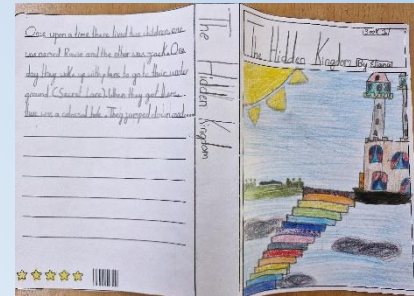 Once upon a time there lived two children one
was named Rose and the other was Day
day they woke up with plans to go to their under
ground (Secret Lace) When they got there
there was a colossal hole. They jumped down and
The Hidden Kingdom
Book 1
The Hidden Kingdom By